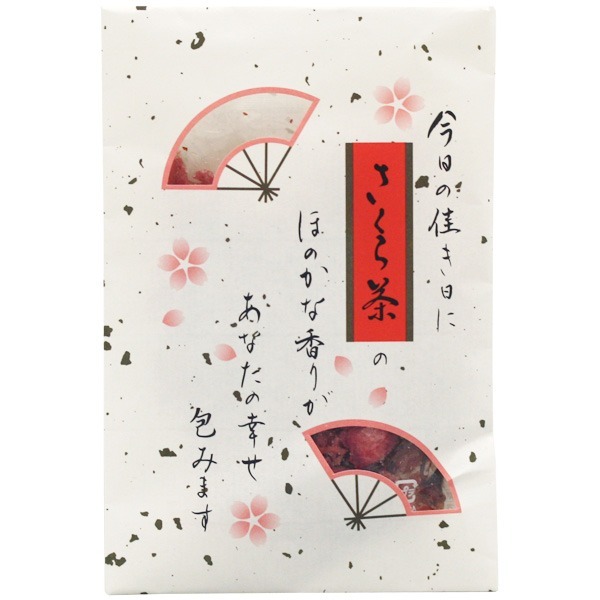 今日の佳き日に
さくら茶
の
ほのかな香りが
あなたの幸せ
包みます